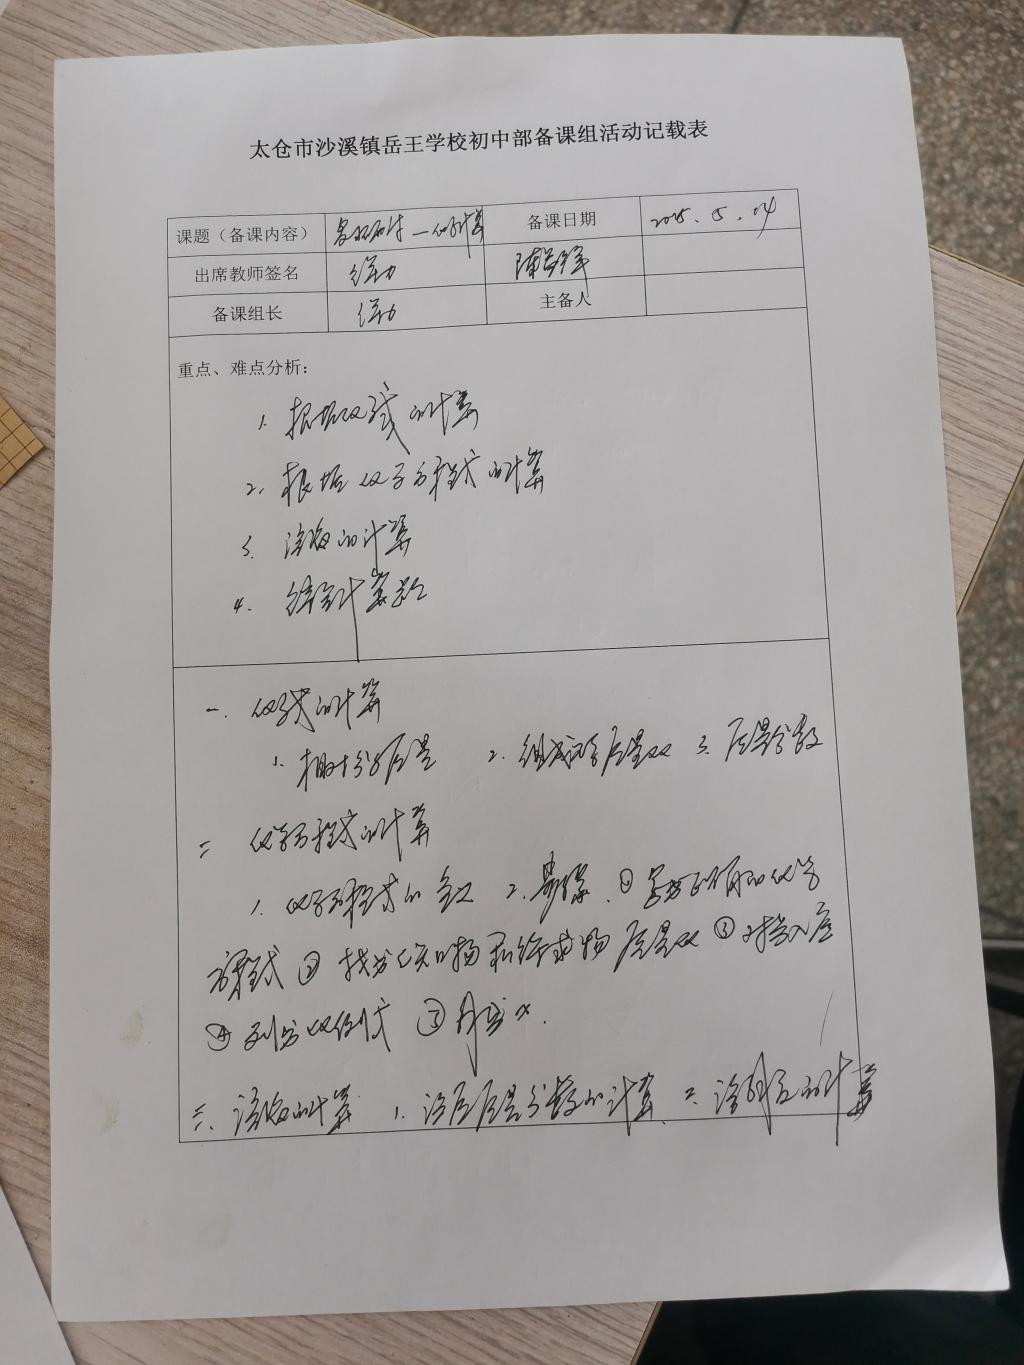 太仓市沙溪镇岳王学校初中部备课组活动记载表
课题（备课内容） 计算 备课日期 2015.5.04
出席教师签名
备课组长 主备人
重点、难点分析：
1. 根据化学式的计算
2. 根据化学方程式的计算
3. 溶液的计算
4. 综合计算题
一. 化学式的计算
1. 相对分子质量 2. 组成元素质量比 3. 质量分数
二 化学方程式的计算
1. 化学方程式的含义 2. 步骤. ① 写出正确的化学
方程式 ② 找出已知物和待求物质量比 ③ 对号入座
④ 列出比例式 ⑤ 解出x.
三. 溶液的计算 1. 溶质质量分数的计算 2. 溶解度的计算